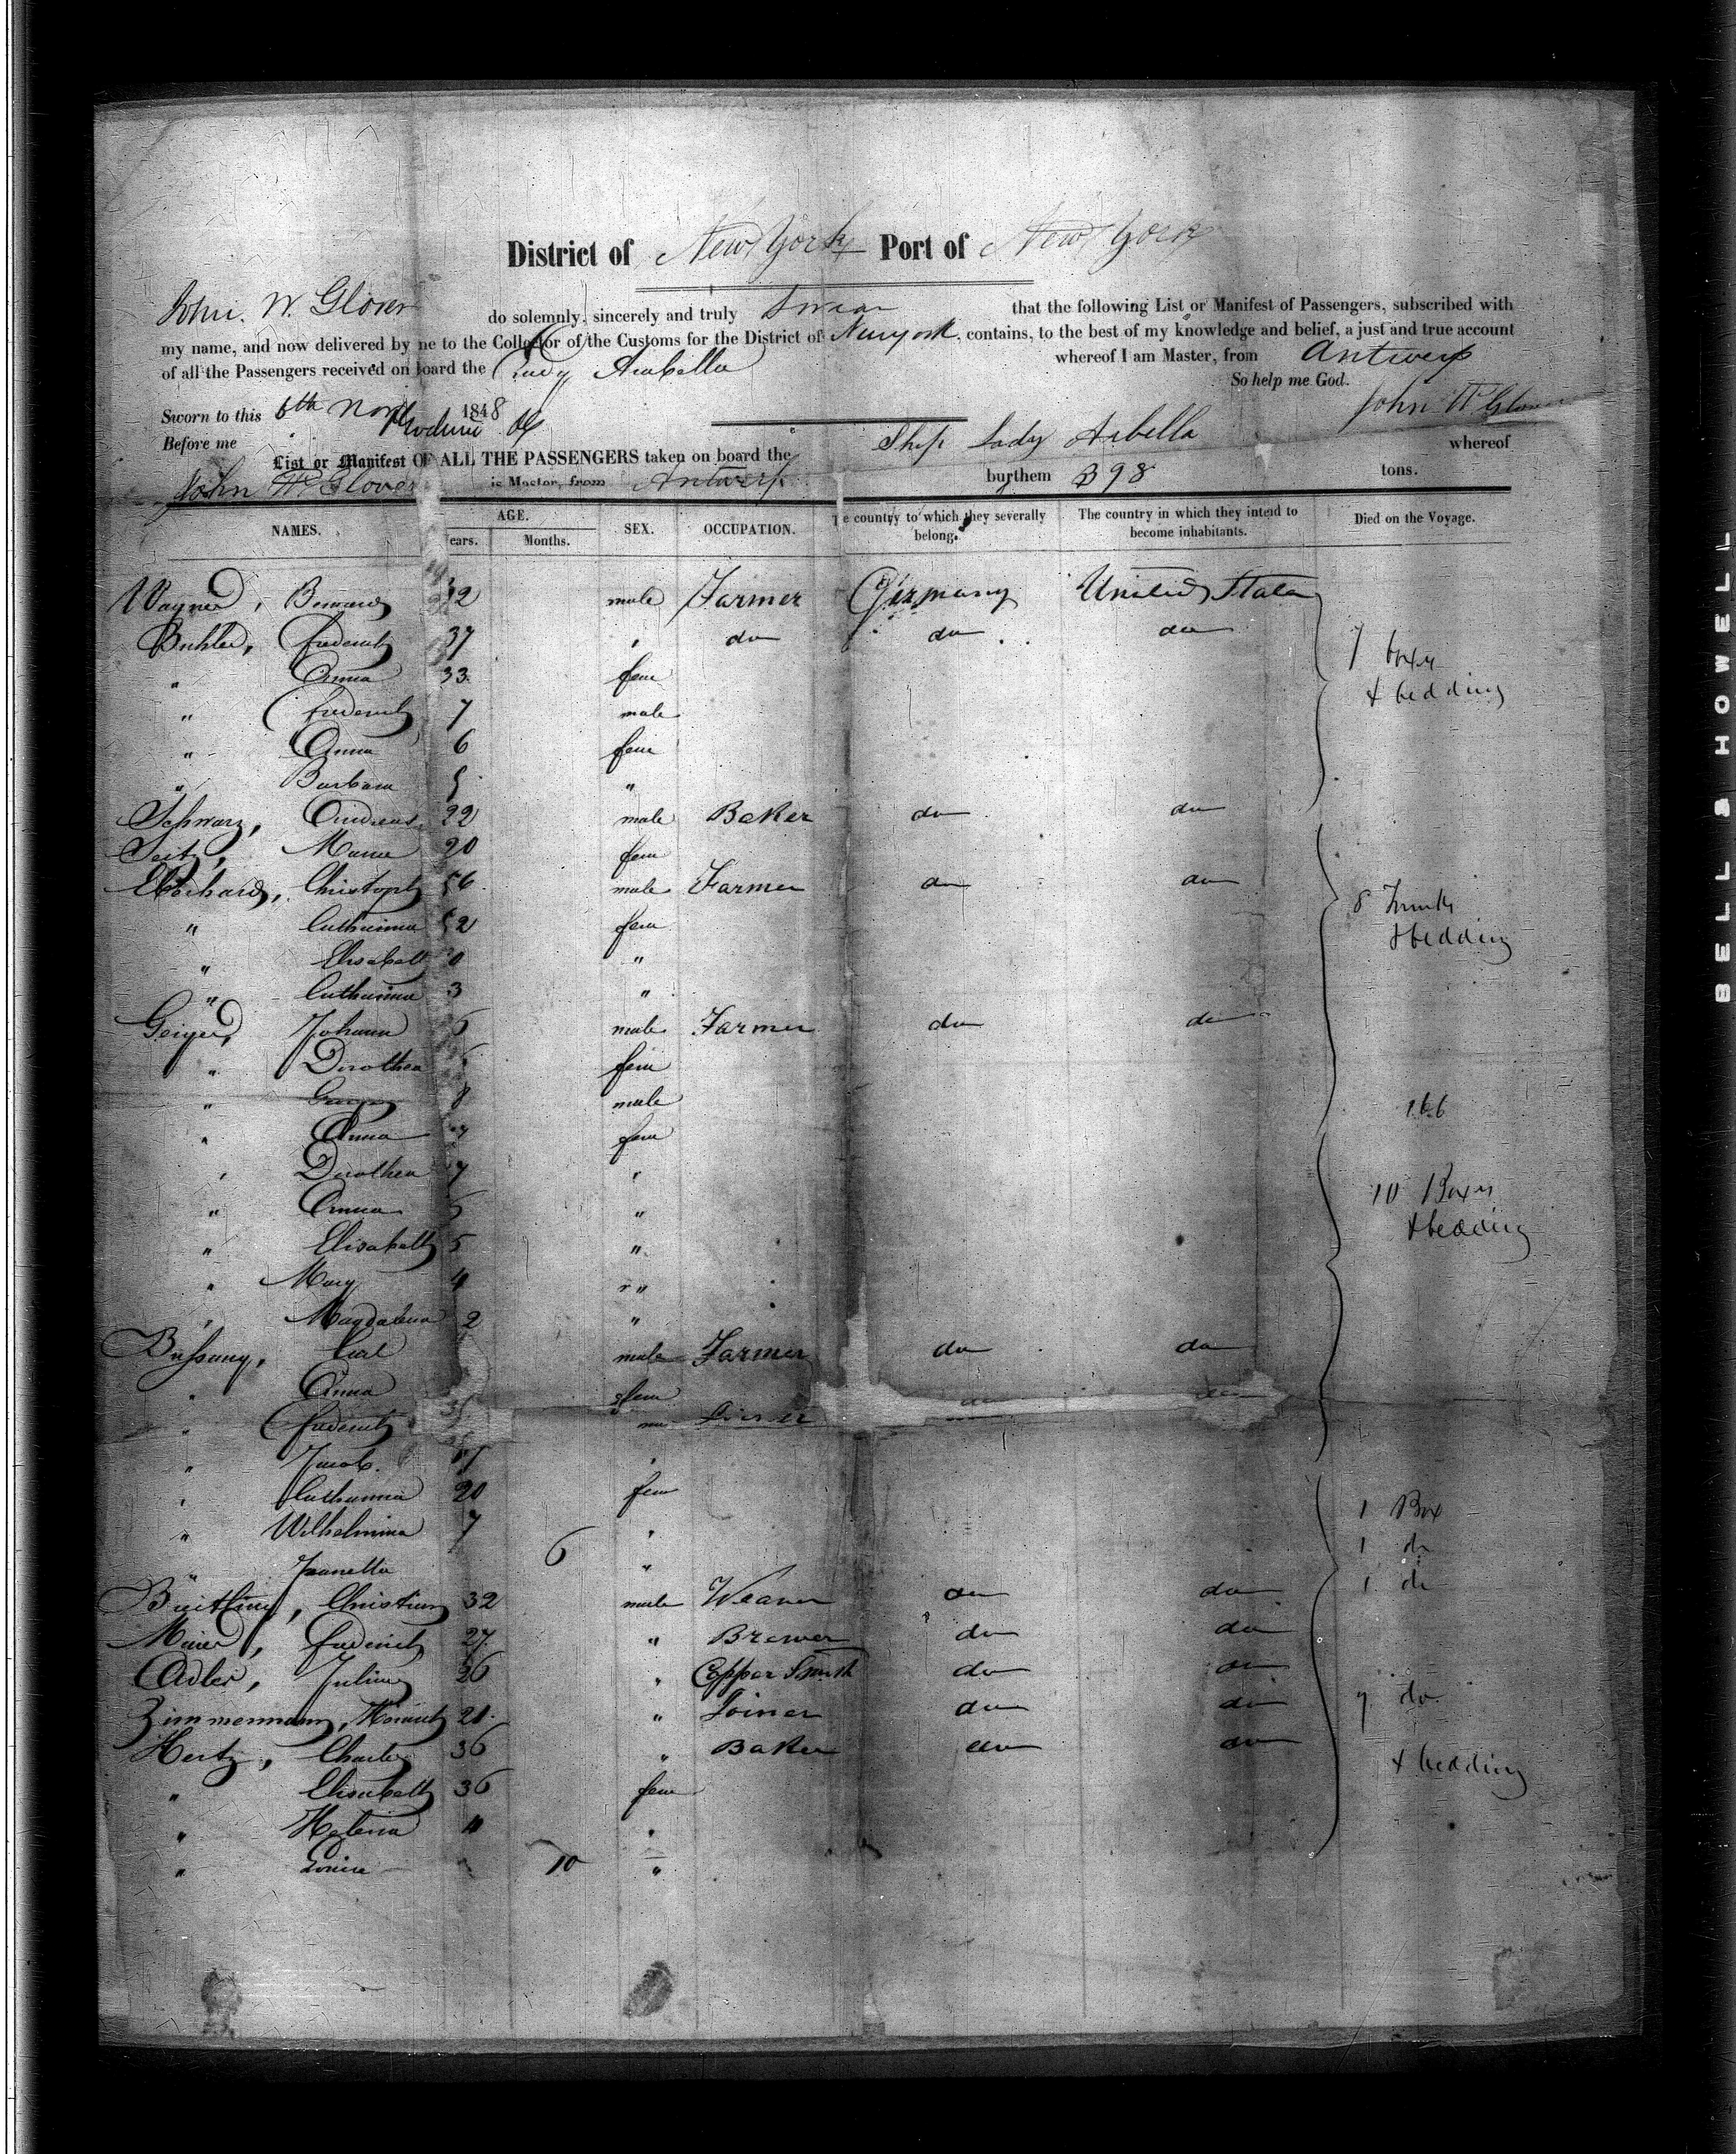 District of New York Port of New York
John. W. Glover do solemnly, sincerely and truly Swear that the following List or Manifest of Passengers, subscribed with
my name, and now delivered by me to the Collector of the Customs for the District of Newyork, contains, to the best of my knowledge and belief, a just and true account
of all the Passengers received on board the Lady Arabella whereof I am Master, from Antwerp
So help me God.
Sworn to this 6th Nov 1848 John W Glover
Before me
List or Manifest OF ALL THE PASSENGERS taken on board the Ship Lady Arbella whereof
John W. Glover is Master, from Antwerp burthem 398 tons.
NAMES. AGE. Years. Months. SEX. OCCUPATION. The country to which they severally belong. The country in which they intend to become inhabitants. Died on the Voyage.
Wagner, 32 male Farmer Germany United States
Buhler, Frederick 37 " do do do
" Anna 33 fem
7 boxes
& bedding
" Frederick 7 male
" Anna 6 fem
" Barbara 5 "
Schwarz, Andreas 22 male Baker do do
Seitz, Maria 20 fem
Christoph 56 male Farmer do do
8 Trunks
& bedding
" Catharina 52 fem
" Elisabeth "
" Catharina 3 "
Geiger, Johann male Farmer do do
" Dorothea fem
" 8 male
166
" Anna fem
" Dorothea 7 "
10 Boxes
& bedding
" Anna 5 "
" Elisabeth 5 "
" Mary 4 "
" Magdalena 2 "
Carl male Farmer do do
" Anna fem
" Frederick
" Jacob. "
" Catharina 20 fem
1 Box
" Wilhelmina 7 "
1 do
" Jeanetta 6 "
1 do
Christian 32 male Weaver do do
Meier, Frederick 27 " Brewer do do
Adler, Julius 26 " Copper Smith do do
7 do
Zimmermann, Heinrich 21 " Joiner do do
Hertz, Charles 36 " Baker do do
& bedding
" Elisabeth 36 fem
" Helena "
" Louise 10 "
BELL & HOWELL